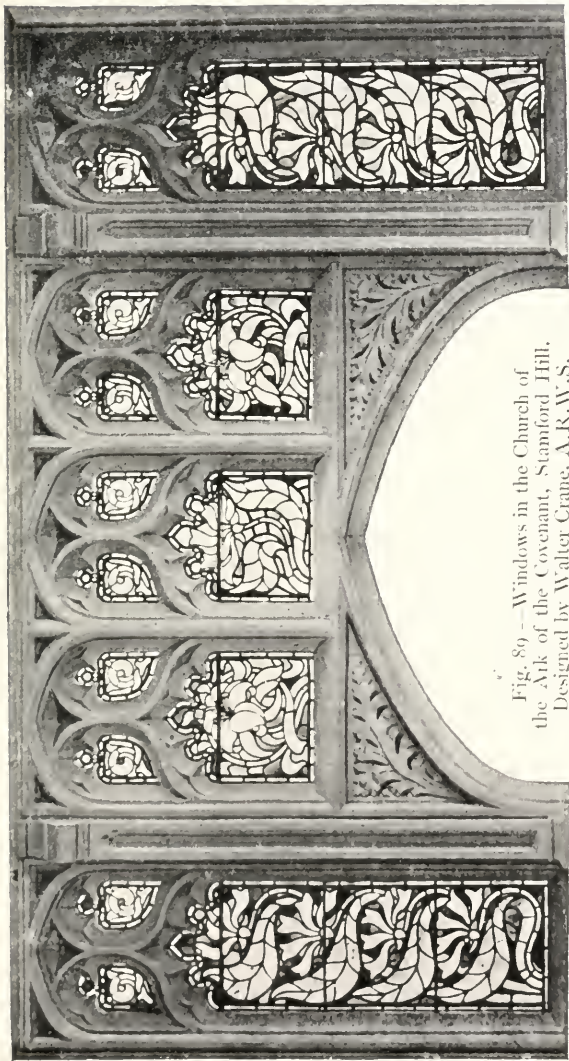 Fig. 89 —Windows in the Church of
the Ark of the Covenant, Stamford Hill.
Designed by Walter Crane, A.R.W.S.